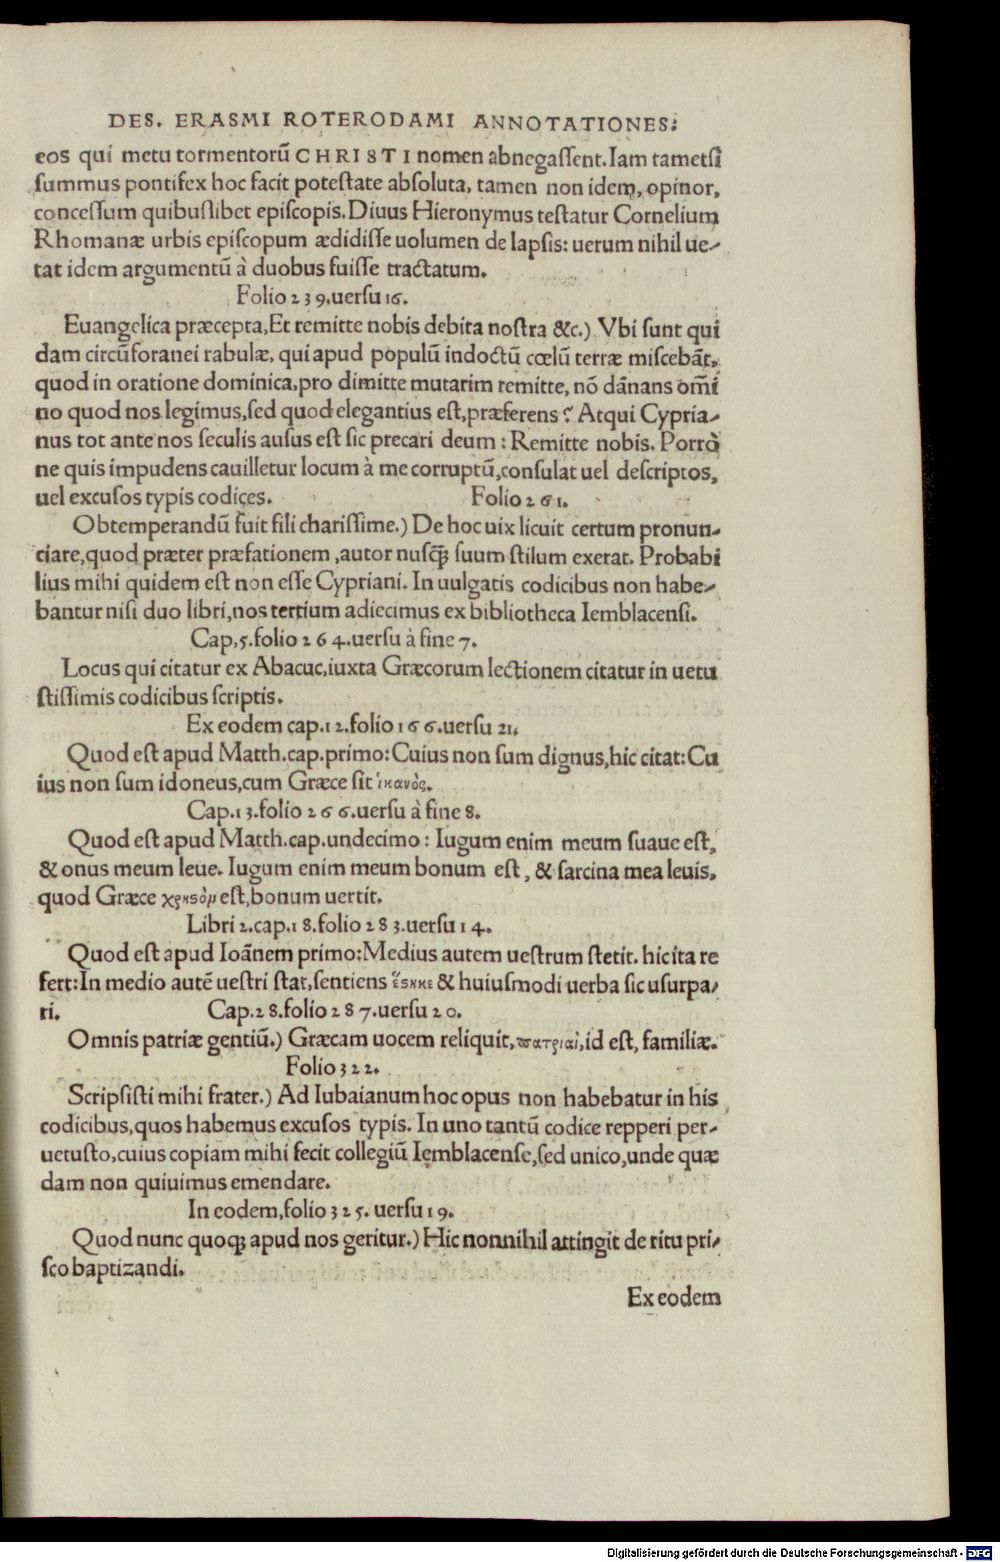 DES. ERASMI ROTERODAMI ANNOTATIONES:
eos qui metu tormentorũ CHRISTI nomen abnegaſſent. Iam tametſi
ſummus pontifex hoc facit poteſtate abſoluta, tamen non idem, opinor,
conceſſum quibuſlibet epiſcopis. Diuus Hieronymus teſtatur Cornelium
Rhomanæ urbis epiſcopum ædidiſſe uolumen de lapſis: uerum nihil ue-
tat idem argumentũ à duobus fuiſſe tractatum.
Folio 239. uerſu 16.
Euangelica præcepta, Et remitte nobis debita noſtra &c.) Vbi ſunt qui
dam circũforanei rabulæ, qui apud populũ indoctũ cœlũ terræ miſcebãt,
quod in oratione dominica, pro dimitte mutarim remitte, nõ dãnans om̃i
no quod nos legimus, ſed quod elegantius eſt, præferens? Atqui Cypria-
nus tot ante nos ſeculis auſus eſt ſic precari deum: Remitte nobis. Porrò
ne quis impudens cauilletur locum à me corruptũ, conſulat uel deſcriptos,
uel excuſos typis codices. Folio 261.
Obtemperandũ fuit fili chariſſime.) De hoc uix licuit certum pronun-
ciare, quod præter præfationem, autor nuſq̃ ſuum ſtilum exerat. Probabi
lius mihi quidem eſt non eſſe Cypriani. In uulgatis codicibus non habe-
bantur niſi duo libri, nos tertium adiecimus ex bibliotheca Iemblacenſi.
Cap, 5. folio 264. uerſu à fine 7.
Locus qui citatur ex Abacuc, iuxta Græcorum lectionem citatur in uetu
ſtiſſimis codicibus ſcriptis.
Ex eodem cap. 12. folio 166. uerſu 21.
Quod eſt apud Matth. cap. primo: Cuius non ſum dignus, hic citat: Cu
ius non ſum idoneus, cum Græce ſit ἱκανὸς.
Cap. 13. folio 266. uerſu à fine 8.
Quod eſt apud Matth. cap. undecimo: Iugum enim meum ſuaue eſt,
& onus meum leue. Iugum enim meum bonum eſt, & ſarcina mea leuis,
quod Græce χρηϛὸμ eſt, bonum uertit.
Libri 2. cap. 18. folio 283. uerſu 14.
Quod eſt apud Ioãnem primo: Medius autem ueſtrum ſtetit. hic ita re
fert: In medio autẽ ueſtri ſtat, ſentiens ἕϛηκε & huiuſmodi uerba ſic uſurpa-
ri. Cap. 28. folio 287. uerſu 20.
Omnis patriæ gentiũ.) Græcam uocem reliquit, πατριαὶ, id eſt, familiæ.
Folio 322.
Scripſiſti mihi frater.) Ad Iubaianum hoc opus non habebatur in his
codicibus, quos habemus excuſos typis. In uno tantũ codice repperi per-
uetuſto, cuius copiam mihi fecit collegiũ Iemblacenſe, ſed unico, unde quæ
dam non quiuimus emendare.
In eodem, folio 325. uerſu 19.
Quod nunc quoqꝫ apud nos geritur.) Hic nonnihil attingit de ritu pri-
ſco baptizandi.
Ex eodem
Digitalisierung gefördert durch die Deutsche Forschungsgemeinschaft - DFG